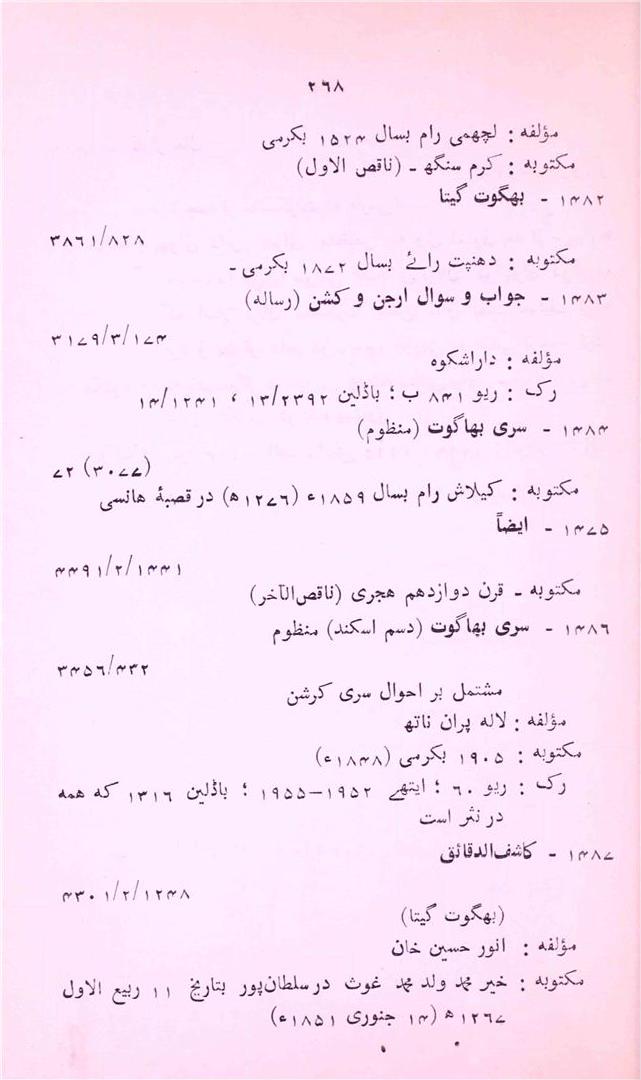 ۲۶۸
مؤلفه : لچھمی رام بسال ۱۵۲۴ بکرمی
مکتوبه : کرم سنگھ ۔ (ناقص الاول)
۱۴۸۲ ۔ بھگوت گیتا
۳۸۶۱/۸۲۸
مکتوبه : دھنپت رائے بسال ۱۸۷۲ بکرمی ۔
۱۴۸۳ ۔ جواب و سوال ارجن و کشن (رساله)
۳۱۷۹/۳/۱۷۴
مؤلفه : داراشکوه
رک : ریو ۸۴۱ ب ؛ باڈلین ۱۳/۲۳۹۲ ، ۱۴/۱۲۴۱
۱۴۸۴ ۔ سری بھاگوت (منظوم)
۷۲ (۳۰۷۷)
مکتوبه : کیلاش رام بسال ۱۸۵۹ء (۱۲۷۶ھ) در قصبۂ ھانسی
۱۴۷۵ ۔ ایضاً
۴۴۹۱/۲/۱۴۴۱
مکتوبه ۔ قرن دوازدھم ھجری (ناقص‌الآخر)
۱۴۸۶ ۔ سری بھاگوت (دسم اسکند) منظوم
۳۴۵۶/۴۳۲
مشتمل بر احوال سری کرشن
مؤلفه : لاله پران ناتھ
مکتوبه : ۱۹۰۵ بکرمی (۱۸۴۸ء)
رک : ریو ۶۰ ؛ ایتھے ۱۹۵۲–۱۹۵۵ ؛ باڈلین ۱۳۱۶ که ھمه
در نثر است
۱۴۸۷ ۔ کاشف‌الدقائق
۴۳۰۱/۲/۱۲۴۸
(بھگوت گیتا)
مؤلفه : انور حسین خان
مکتوبه : خیر محمد ولد محمد غوث در سلطان‌پور بتاریخ ۱۱ ربیع الاول
۱۲۶۷ھ (۱۴ جنوری ۱۸۵۱ء)